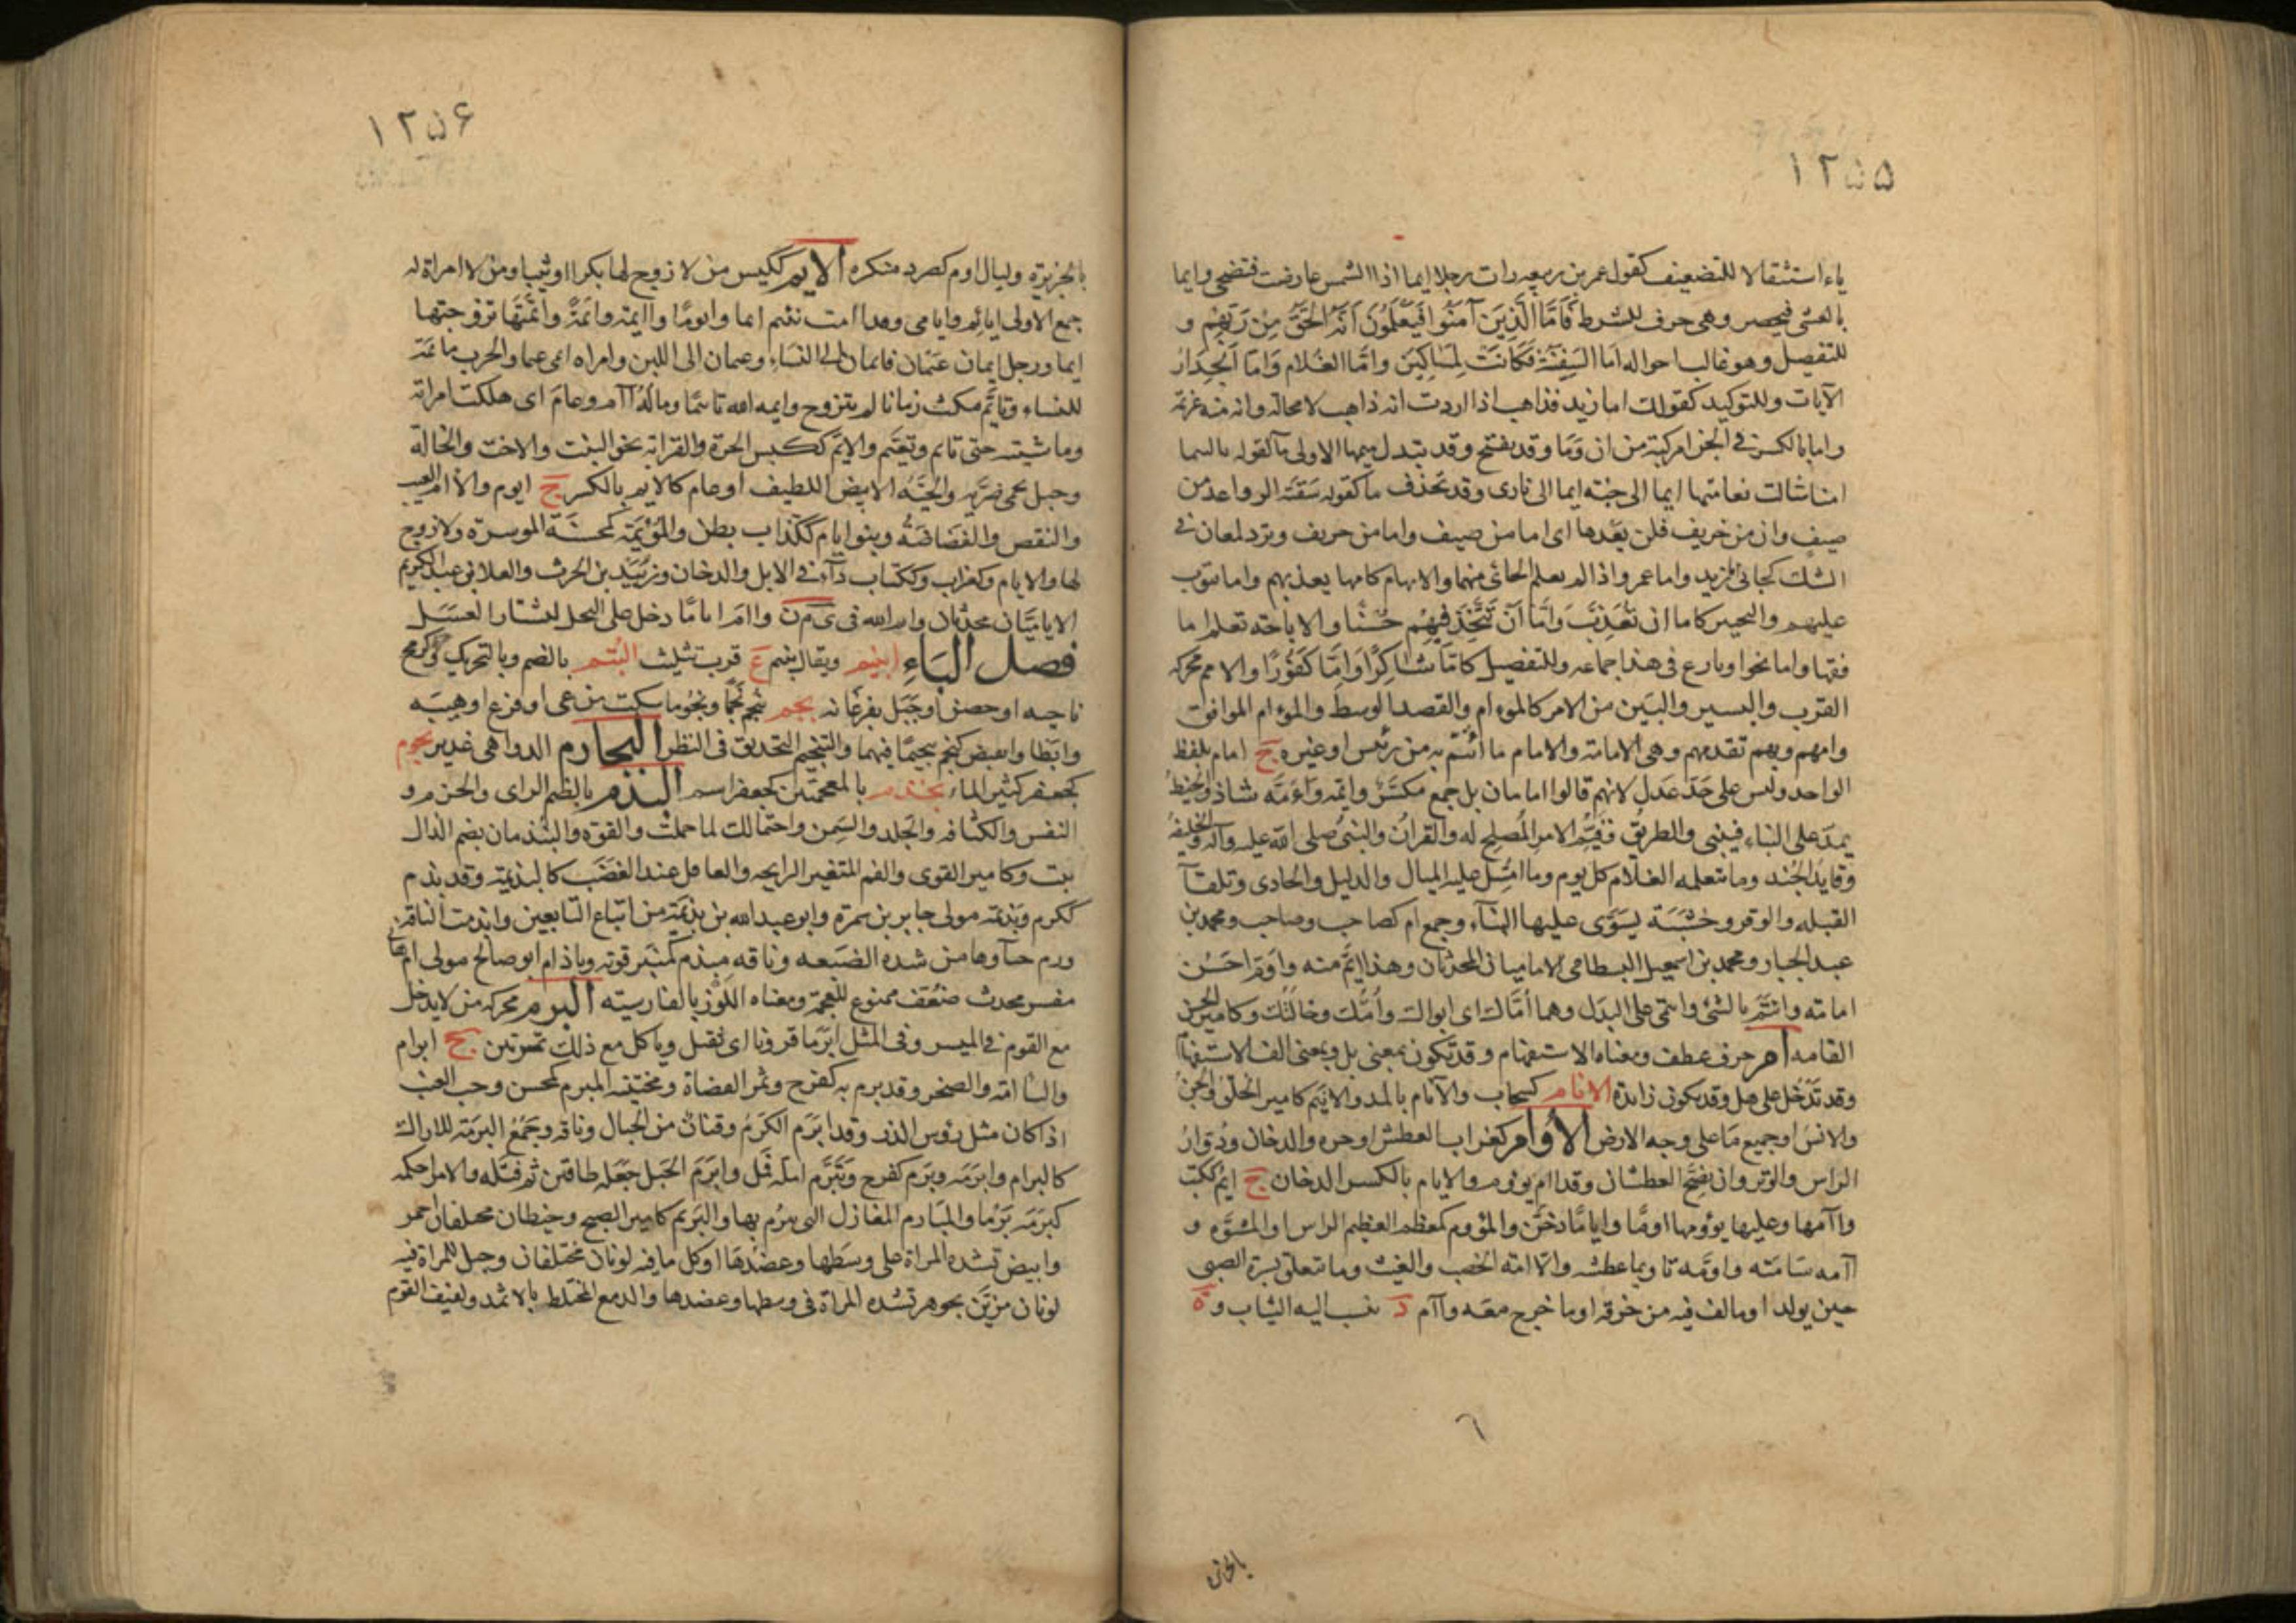 ١٢٥٥
ياء استثقالا للتضعيف كقول عمر بن ربيعه رات رجلا ايما اذا الشمس عارضت فتضحى وايما
بالعشى فيحصر وهى حرف للشرط فَاَمَّا الَّذِيَن آمَنُوا فَيَعْلَمُونَ اَنَّهُ الْحَقُّ مِنْ رَبِّهِمْ و
للتفصيل وهو غالب احواله اَمَّا السَفِينَةُ فَكَانَتْ لِمَسَاكِينَ واَمَّا الغُلام وَامَّا الجِدَارُ
الآيات وللتوكيد كقولك اما زيد فذاهب اذا اردت انه ذاهب لا محالة وانه منه عزيمة
واما بالكسر فى الجزا مركبة من ان وَمَا وقد يفتح وقد يتبدل ميمها الاولى يآ كقوله يا ليتما
امنا شالت نعامتها ايما الى جنّه ايما الى نارى وقد تحذف ما كقوله سَقَتْه الرواعد من
صيف وان من خريف فلن يعدها اى اما من صيف واما من خريف وترد لمعان فى
الشك كجائى اما زيد واما عمرو اذا لم يعلم الجائى منهما والابهام كاما يعذبهم واما يتوب
عليهم والتخيير كاما ان تُعَذِّبَ وَاِمَّا اَنْ تَتَّخِذَ فِيهِمْ حُسْنًا والاباحة تعلم اما
فقها واما نحوا ونازع فى هذا جماعه وللتفصيل كامّا شَاكِرًا وَاِمَّا كَفُوْرًا والامم محركه
القرب واليسير والبَيّن من الامر كالموام والقصد الوسط والمؤام الموافق
وامهم وبهم تقدمهم وهى الامامة والامام ما ائتُمّ به من رئيس او غيره ج امام بلفظ
الواحد وليس على حَدِّ عَدل لانهم قالوا امامان بل جمع مكسّر وايمّه واَءمَّه شاذ والخيط
يمدّ على البناء فيبنى والطريق وقَيِّم الامر المُصلِح له والقرآن والنبى صلى الله عليه وآله والخليفة
وقايد الجُند وما يتعلمه الغلام كل يوم وما امتُثِل عليه المثال والدليل والحادى وتلقآ
القبله والوتر وخَشَبَة يُسَوَّى عليها البنآء وجمع ام كصاحب وصحاب ومحمد بن
عبد الجبار ومحمد بن اسمعيل البسطامى الاماميان المحدثان وهذا ايَمّ منه واَوَمّ احسن
امامة وائتمّ بالشئ وائتمى على البدل وهما أمّاك اى ابواك وأمُّك وخالتُك وكامير الحسن
القامه ام حرف عطف ومعناه الاستفهام وقد تكون بمعنى بل وبمعنى الف الاستفهام
وقد تَدخُل على هل وقد تكون زايدة الانام كسحاب والآنام بالمد والانيم كامير الخلق والجن
والانس او جميع ما على وجه الارض الأُوَام كغراب العطش او حره والدخان ودُوَارُ
الراس والوَتر وان يضِجّ العطشان وقد ام يؤوم والايام بالكسر الدخان ج ايُم ككتب
واآمها وعليها يؤومها اومًا وايامًا دخّن والمؤوم كمعظم العظيم الراس او المشوَّه و
آامه سَامَته واوّمه تاويما عطشه والآمة الخصب والعيب وما يتعلق بسرة الصبى
حين يولد او ما لف فيه من خرقة او ما خرج معه وآام د ينسب اليه الثياب و ة
٦
بالجزيرة
١٢٥۶
بالجزيرة وليال اوم كصرد منكره الايم ككيس من لا زوج لها بكرا او ثيبا ومن لا امراة له
جمع الاولى ايائم وايامى وقد اآمت تئيم ايما وايومًا واايمة وائمةً واَئمتُها تزوجتها
ايما ورجل ايمان عَيْمان فايمان الى النساء وعيمان الى اللبن وامراه ايمى عيما والحرب مائمة
للنساء وتأيَّم مكث زمانا لم يتزوج وايمه الله تاييمًا ومالَهُ اآم وعامَ اى هلكت امراته
وماشيته حتى تايم وتعيّم والايّم ككيس الحرة والقرابة نحو البنت والاخت والخالة
وجبل بحمى ضريّه والحيّةُ الابيض اللطيف او عام كالايم بالكسر ج ايوم والاآمه العيب
والنقص والغَضَاضَةُ وبنو ايام ككذاب بطن والمُؤْيِمَة كمحسنة الموسرة ولا زوج
لها والايام كغراب وككتاب دآء فى الابل والدخان وزُبَيْد بن الحرث والعلا بن عبد الكريم
الاياميَّان محدثان وايم الله فى ى م ن واام اياماً دخل على النحل لشتار العَسَل
فصل البَاءِ ابنيم ويقال ينبم ع قرب تثليث البُتم بالضم وبالتحريك وكزمج
ناحية او حصن او جَبَل بفرغانه بجم يَبجم بَجمًا وبُجُوما سكت من عى او فزع او هيبَه
وابطا وانقبض كبجّم تبجيمًا فيهما والتبجيم التحديق فى النظر البحارم الدواهى غدير بحوم
كجعفر كثير الماء بخذم بالمعجمتين كجعفر اسم البُذم بالضم الراى والحزم و
النفس والكثافه والجَلد والسِّمن واحتمالك لما حملت والقوة والبُذمان بضم الذال
نبت وكامير القوى والفم المتغير الرايحه والعاقل عند الغَضَب كالبذيمة وقد بذم
ككرم وبَذيمة مولى جابر بن سمرة وابو عبد الله بن بذيمَة من اتباع التابعين وابذمت الناقة
ورم حيآوها من شده الضَبَعه وناقه مِبذم كمنبر قوية وباذام ابو صالح مولى ام هانى
مفسر محدث ضعيف ممنوع للعجمة ومعناه اللَّوز بالفارسيه البَرَم محركه من لا يدخل
مع القوم فى الميسر وفى المثل ابَرَما قرونا اى ثقيل وياكل مع ذلك تمرتين ج ابرام
والسآمة والضجر وقد برم به كفرح وثمر العضاة ومجتنيه المبرم كمحسن وحب العنب
اذا كان مثل رؤس الذر وقد ابرَم الكرَمُ وقنان من الجبال وناقه وجَمْعُ البرَمَة للاراك
كالبرام وابرَمَه وبَرم كفرح وتَبَرَّم امله فمل وابرَمَ الحَبل جَعَلَه طاقين ثم فَتله والامر احكمه
كبرَمَه بَرْما والمَبارم المغازل التى يبرم بها والبَريم كامير الصبح وخيطان مختلفان احمر
وابيض تشده المراة على وسَطها وعضُدها او كل ما فيه لونان مختلفان وحبل للمراة فيه
لونان مزيّن بجوهر تشده المراة فى وسطها وعضدها والدمع المختلط بالاثمد ولفيف القوم